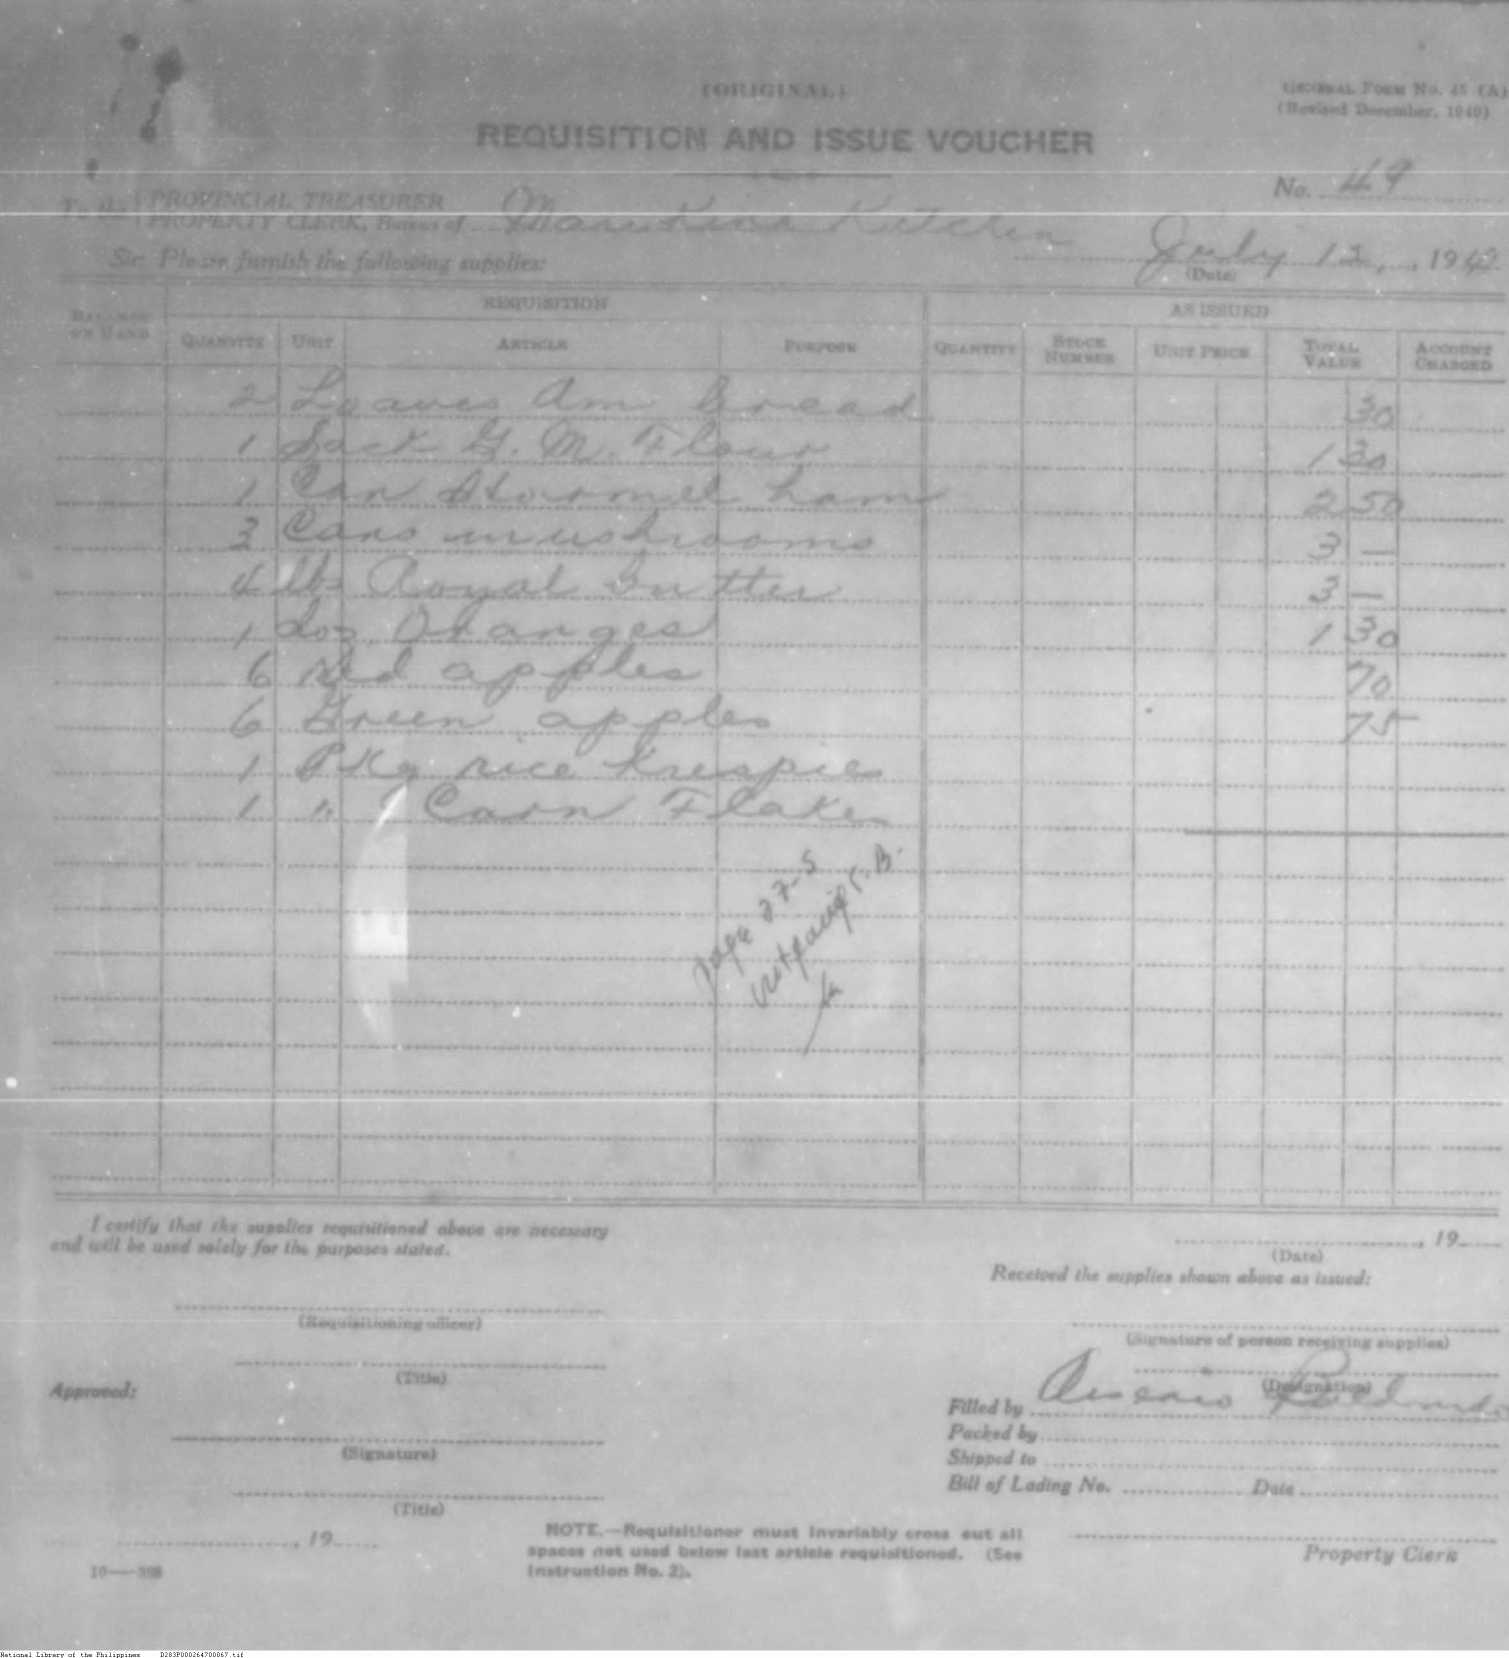 (ORIGINAL)
GENERAL FORM NO. 45 (A)
(Revised December, 1940)
REQUISITION AND ISSUE VOUCHER
No. 49
To the PROVINCIAL TREASURER
PROPERTY CLERK, Bureau of Marikina Kitchen
July 12, 1942
(Date)
Sir: Please furnish the following supplies:
BALANCE ON HAND REQUISITION AS ISSUED
QUANTITY UNIT ARTICLE PURPOSE QUANTITY STOCK NUMBER UNIT PRICE TOTAL VALUE ACCOUNT CHARGED
2 Loaves Am bread 30
1 Sack G. M. Flour 1 30
1 Can Hormel ham 2 50
3 Cans mushrooms 3 —
4 lbs Royal butter 3 —
1 doz Oranges 1 30
6 red apples 70
6 Green apples 75
1 Pkg rice Krispies
1 " Corn Flakes
page 27-5
I certify that the supplies requisitioned above are necessary
and will be used solely for the purposes stated.
, 19
(Date)
Received the supplies shown above as issued:
(Requisitioning officer)
(Signature of person receiving supplies)
(Title)
(Designation)
Approved:
Filled by
Packed by
(Signature)
Shipped to
Bill of Lading No. Date
(Title)
, 19
NOTE.—Requisitioner must invariably cross out all
spaces not used below last article requisitioned. (See
Instruction No. 2).
Property Clerk
National Library of the Philippines D283P000264700067.tif